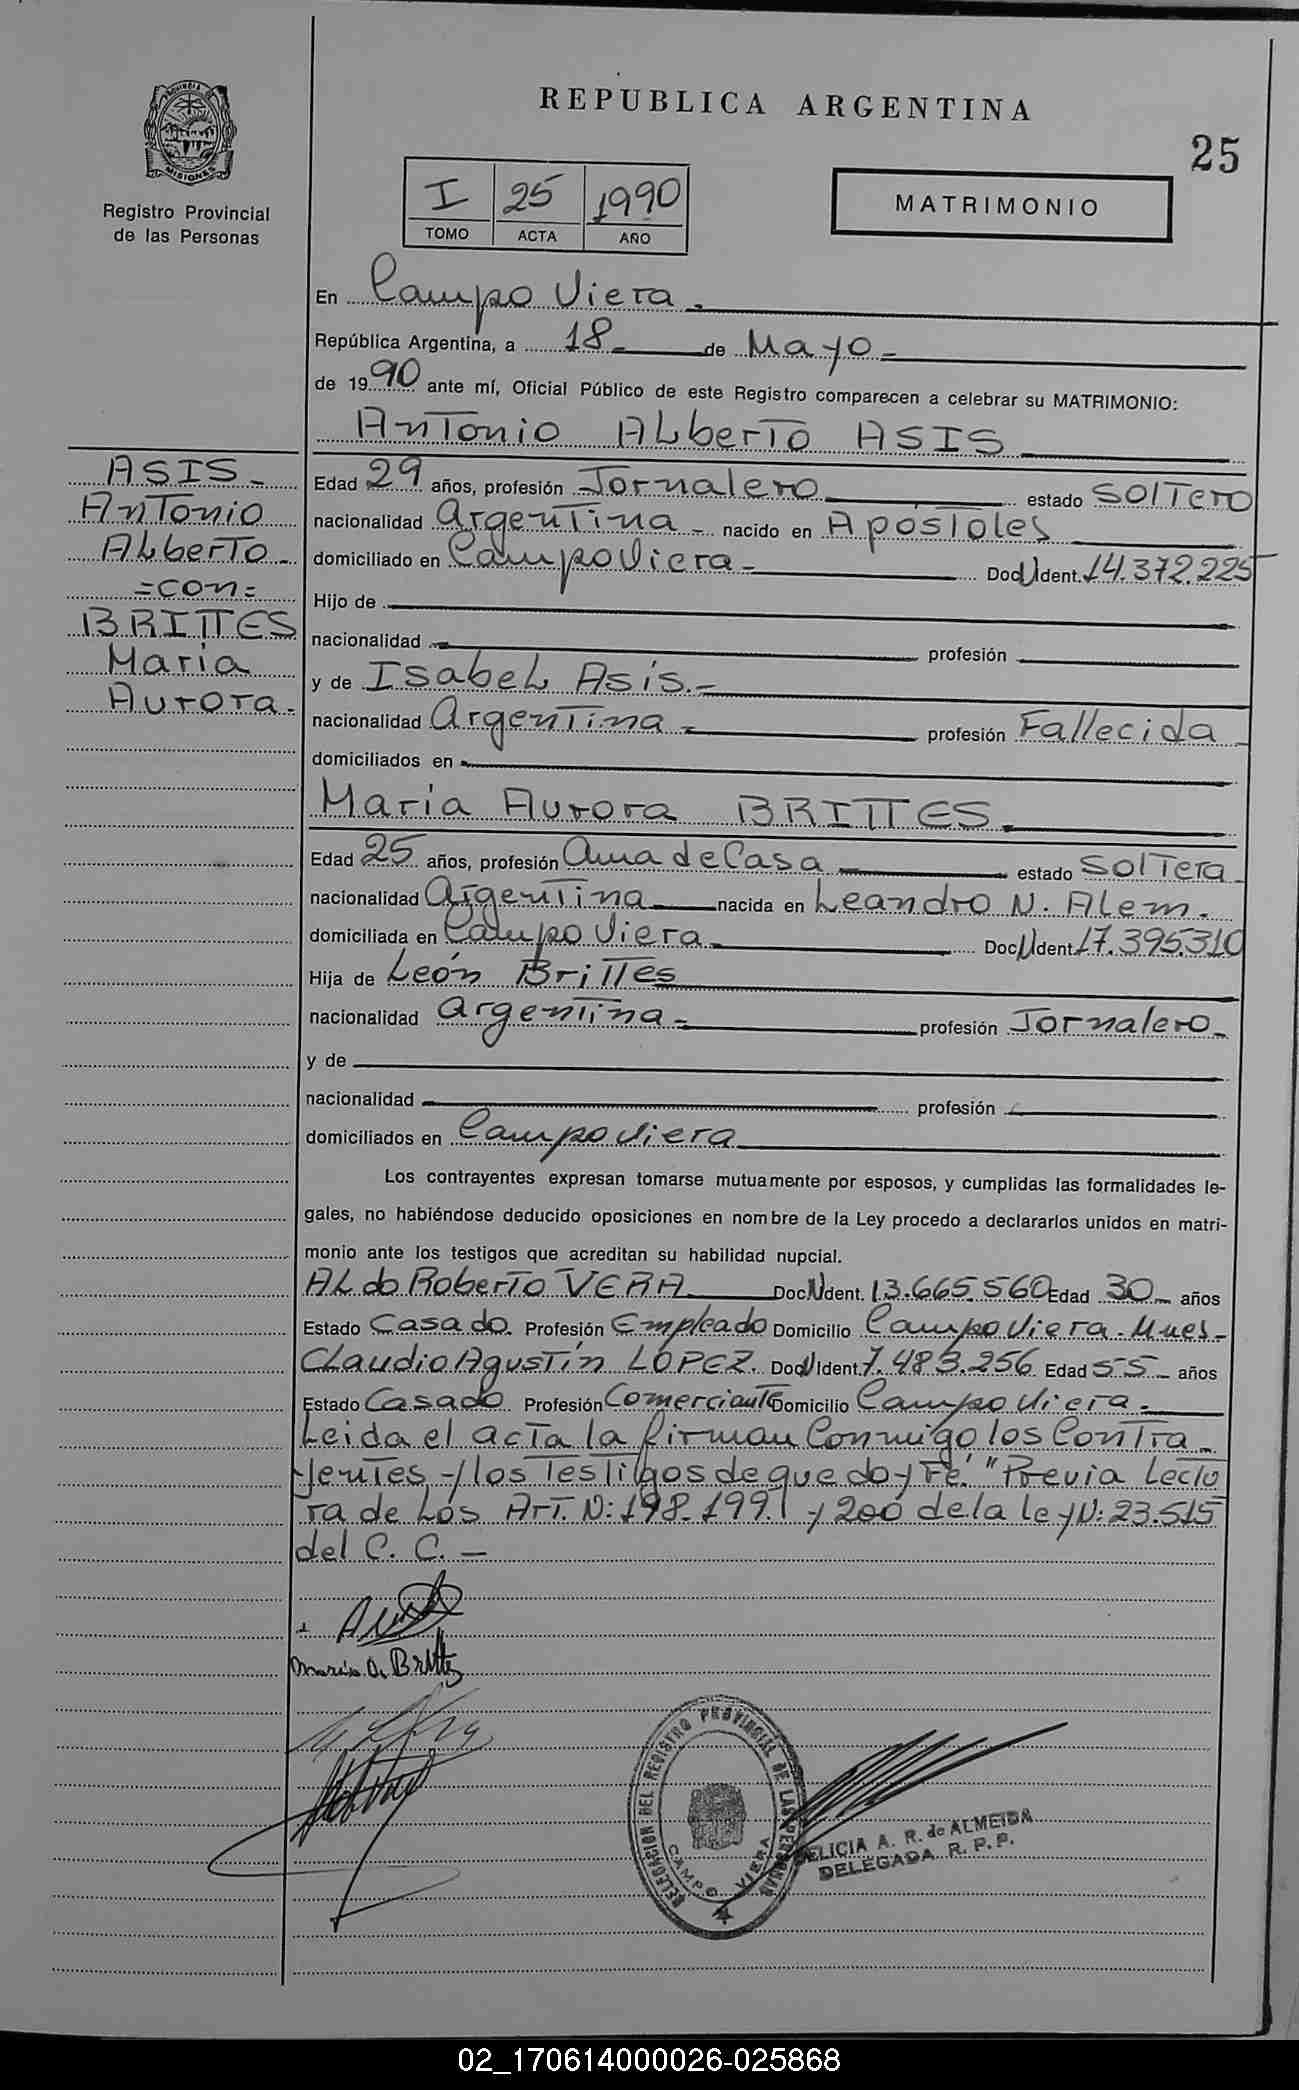 REPUBLICA ARGENTINA
25
PROVINCIA DE
MISIONES
Registro Provincial
de las Personas
I 25 1990
TOMO ACTA AÑO
MATRIMONIO
En Campo Viera.
República Argentina, a 18 de Mayo
de 1990 ante mí, Oficial Público de este Registro comparecen a celebrar su MATRIMONIO:
Antonio Alberto ASIS
ASIS
Antonio
Alberto
=con=
BRITTES
Maria
Aurora.
Edad 29 años, profesión Jornalero estado Soltero
nacionalidad Argentina nacido en Apóstoles
domiciliado en Campo Viera Doc. N Ident. 14.372.225
Hijo de
nacionalidad profesión
y de Isabel Asís.
nacionalidad Argentina profesión Fallecida
domiciliados en
Maria Aurora BRITTES.
Edad 25 años, profesión Ama de Casa estado Soltera
nacionalidad Argentina nacida en Leandro N. Alem.
domiciliada en Campo Viera Doc. N Ident. 17.395.310
Hija de León Brittes
nacionalidad Argentina profesión Jornalero
y de
nacionalidad profesión
domiciliados en Campo Viera
Los contrayentes expresan tomarse mutuamente por esposos, y cumplidas las formalidades le-
gales, no habiéndose deducido oposiciones en nombre de la Ley procedo a declararlos unidos en matri-
monio ante los testigos que acreditan su habilidad nupcial.
Aldo Roberto VERA Doc. N Ident. 13.665.560 Edad 30 años
Estado Casado. Profesión Empleado Domicilio Campo Viera. Mnes-
Claudio Agustín LOPEZ. Doc. N Ident. 7.483.256 Edad 55 años
Estado Casado Profesión Comerciante Domicilio Campo Viera.
Leida el acta la firman Conmigo los Contra-
yentes y los Testigos de que doy Fé. "Previa Lectu
ra de Los Art. N: 198-199 y 200 de la ley N: 23.515
del C. C. —
Maria A. Brittes
DELEGACION DEL REGISTRO PROVINCIAL DE LAS PERSONAS
CAMPO VIERA
FELICIA A. R. de ALMEIDA
DELEGADA R. P. P.
02_170614000026-025868